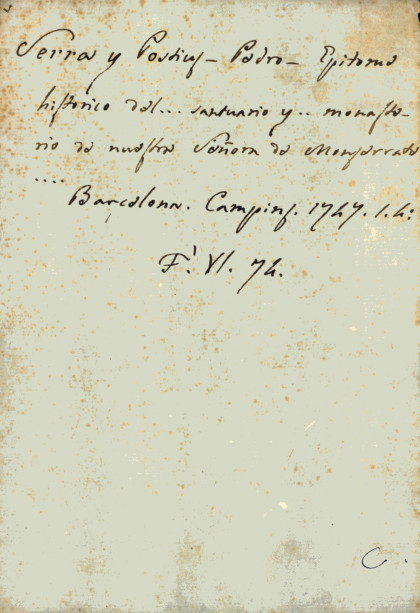 Serra y Postius - Pedro - Epitome
historico del... santuario y.. monaste-
rio de nuestra Señora de Monserrate
....
Barcelona. Campins. 1747. 1. 4:
F. VI. 74.
C.